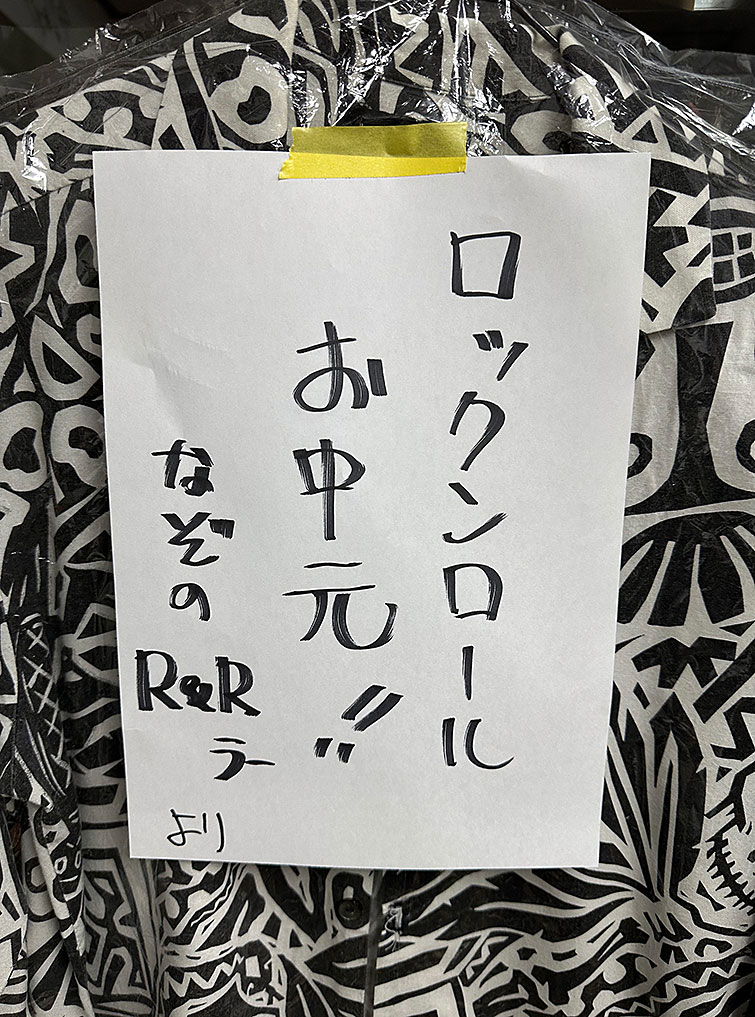 ロックンロール
お中元!!
なぞの
R&R
ラー
より